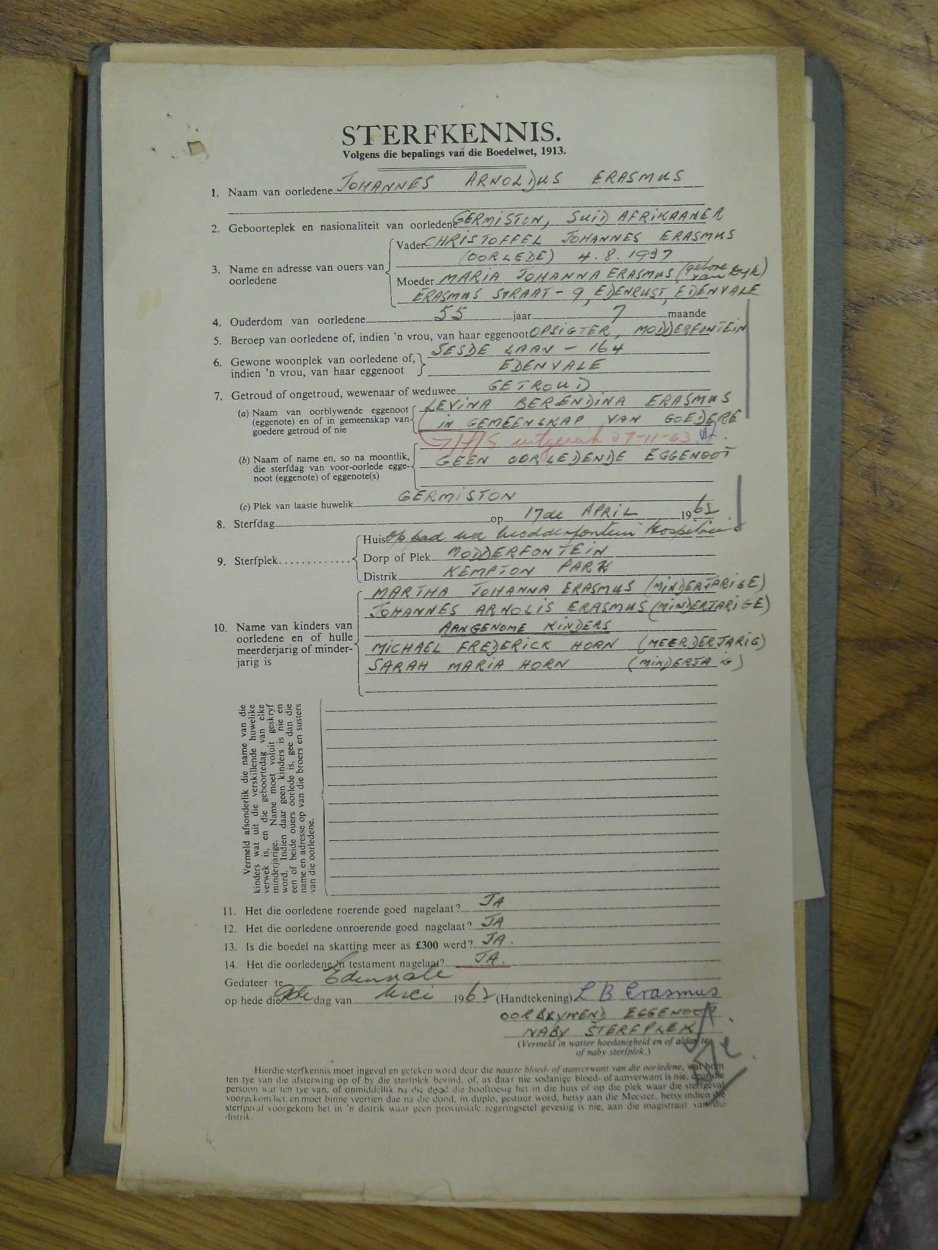 STERFKENNIS.
Volgens die bepalings van die Boedelwet, 1913.
1. Naam van oorledene JOHANNES ARNOLDUS ERASMUS
2. Geboorteplek en nasionaliteit van oorledene GERMISTON, SUID AFRIKAANER
3. Name en adresse van ouers van oorledene
Vader CHRISTOFFEL JOHANNES ERASMUS
(OORLEDE) 4.8.1937
Moeder MARIA JOHANNA ERASMUS (gebore van Dyk)
ERASMUS STRAAT - 9, EDENRUST, EDENVALE
4. Ouderdom van oorledene 55 jaar 7 maande
5. Beroep van oorledene of, indien 'n vrou, van haar eggenoot OPSIGTER, MODDERFONTEIN
6. Gewone woonplek van oorledene of, indien 'n vrou, van haar eggenoot
SESDE LAAN - 164
EDENVALE
7. Getroud of ongetroud, wewenaar of weduwee GETROUD
(a) Naam van oorblywende eggenoot (eggenote) en of in gemeenskap van goedere getroud of nie
LEVINA BERENDINA ERASMUS
IN GEMEENSKAP VAN GOEDERE
uitgereik 27-11-63
(b) Naam of name en, so na moontlik, die sterfdag van voor-oorlede eggenoot (eggenote) of eggenote(s)
GEEN OORLEDENDE EGGENOOT
(c) Plek van laaste huwelik GERMISTON
8. Sterfdag op 17de APRIL 1962
9. Sterfplek
Huis Op pad na Modderfontein Hospitaal
Dorp of Plek MODDERFONTEIN
Distrik KEMPTON PARK
10. Name van kinders van oorledene en of hulle meerderjarig of minderjarig is
MARTHA JOHANNA ERASMUS (MINDERJARIGE)
JOHANNES ARNOLIS ERASMUS (MINDERJARIGE)
AANGENOME KINDERS
MICHAEL FREDERICK HORN (MEERDERJARIG)
SARAH MARIA HORN (MINDERJA G)
Vermeld afsonderlik die name van die
kinders wat uit die verskillende huwelike
verwek is, en die geboortedag van elke
minderjarige. Name moet voluit geskryf
word. Indien daar geen kinders is nie en
een of beide ouers oorlede is, gee dan die
name en adresse op van die broers en susters
van die oorledene.
11. Het die oorledene roerende goed nagelaat? JA
12. Het die oorledene onroerende goed nagelaat? JA
13. Is die boedel na skatting meer as £300 werd? JA.
14. Het die oorledene 'n testament nagelaat? JA.
Gedateer te Edenvale
op hede die dag van Mei 1962 (Handtekening) L B Erasmus
OORBLYWEND EGGENOOT
NABY STERFPLEK
(Vermeld in watter hoedanigheid en of aldan te
of naby sterfplek.)
Hierdie sterfkennis moet ingevul en geteken word deur die naaste bloed- of aanverwant van die oorledene, wat hom
ten tye van die afsterwing op of by die sterfplek bevind, of, as daar nie sodanige bloed- of aanverwant is nie, deur die
persoon wat ten tye van, of onmiddellik na die dood die hooftoesig het in die huis of op die plek waar die sterfgeval
voorgekom het, en moet binne veertien dae na die dood, in duplo, gestuur word, hetsy aan die Meester, hetsy indien die
sterfgeval voorgekom het in 'n distrik waar geen provinsiale regeringsetel gevestig is nie, aan die magistraat van die
distrik.